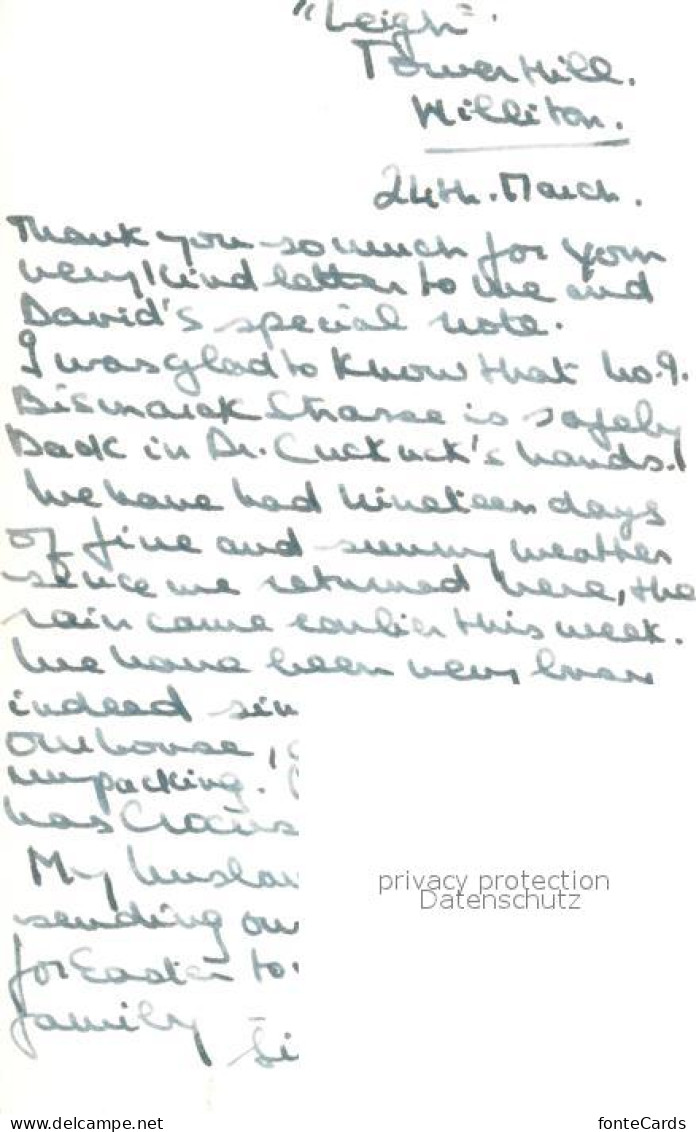 "Leigh".
Tower Hill.
Williton.
24th. March.
Thank you so much for your
very kind letter to me and
David's special note.
I was glad to know that No. 9.
Bismarck Strasse is safely
back in Dr. Cuckuck's hands.!
We have had nineteen days
of fine and sunny weather
since we returned here, the
rain came earlier this week.
We have been very busy
indeed sin
our house,
unpacking.
has
My husban
sending our
for Easter to
family -
Si
privacy protection
Datenschutz
www.delcampe.net
fonteCards